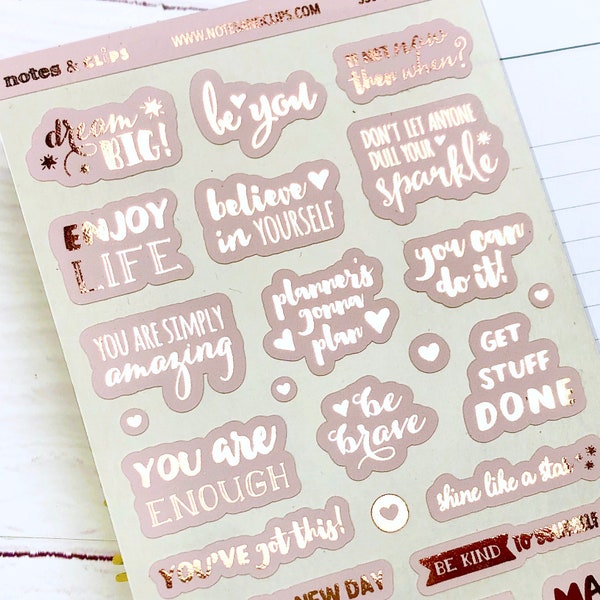 notes & clips
WWW.NOTESANDCLIPS.COM
dream
BIG!
be you
IF NOT now
then when?
ENJOY
LIFE
believe
in YOURSELF
DON'T LET ANYONE
DULL YOUR
sparkle
YOU ARE SIMPLY
amazing
planner's
gonna
plan
you can
do it!
YOU ARE
ENOUGH
be
brave
GET
STUFF
DONE
YOU'VE got this!
shine like a star
NEW DAY
BE KIND TO YOURSELF
MA